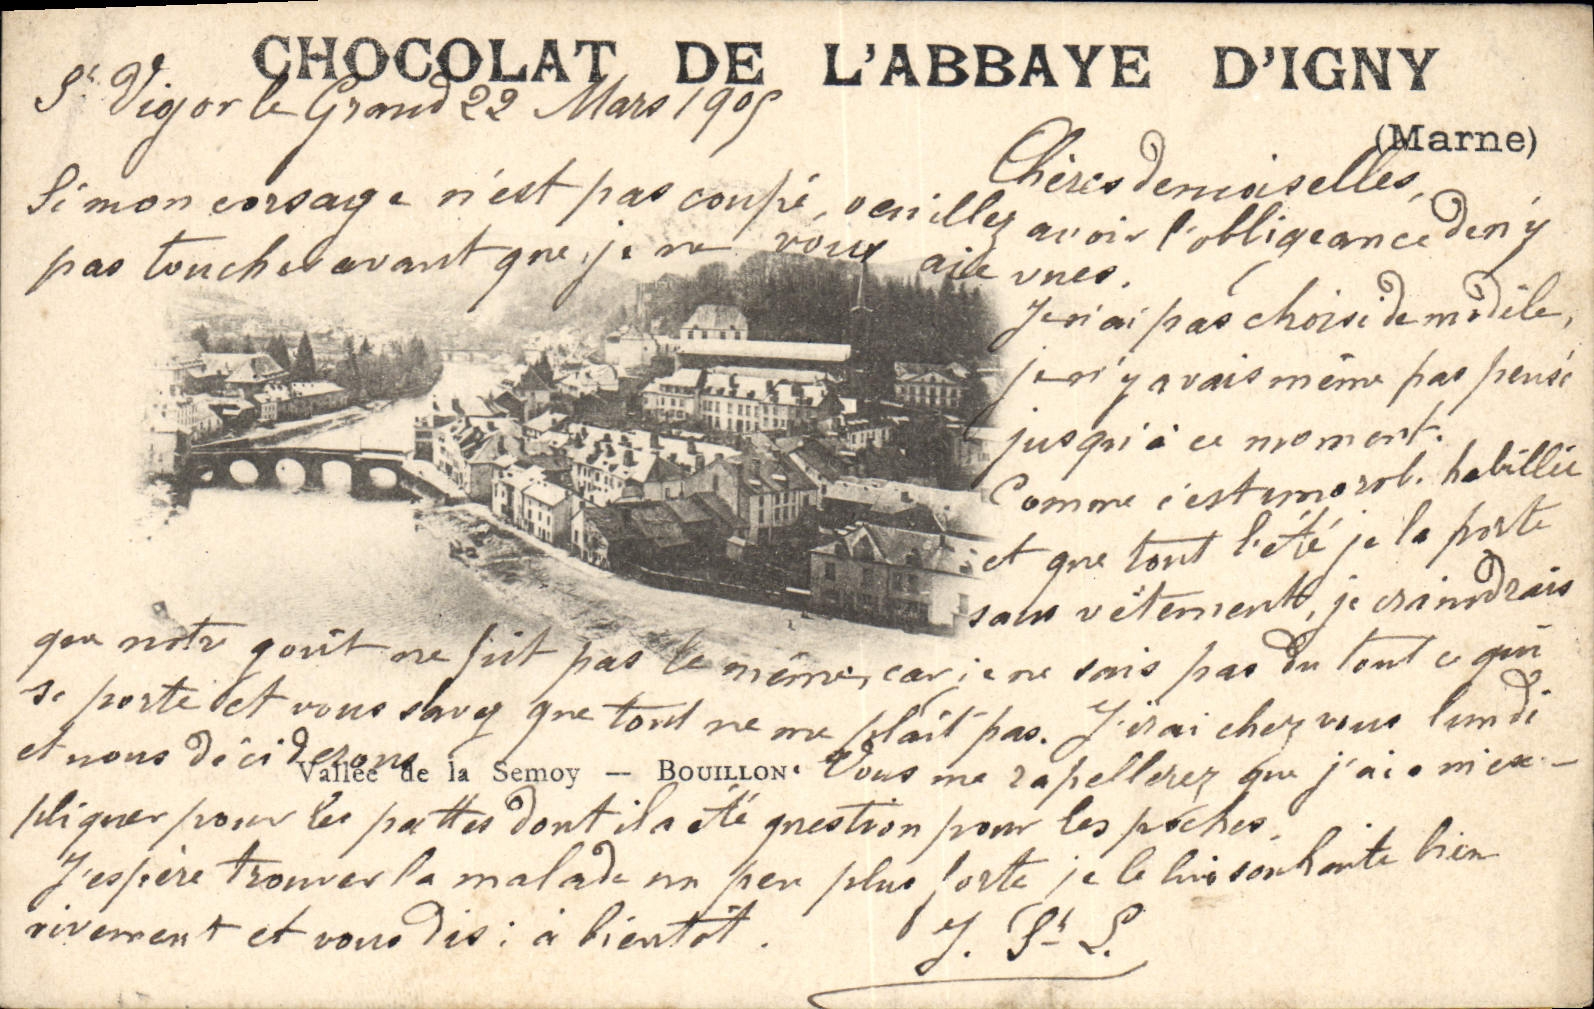 CHOCOLAT DE L'ABBAYE D'IGNY
(Marne)
St Vigor le Grand 22 Mars 1905
Chères demoiselles,
Si mon corsage n'est pas coupé, veuillez avoir l'obligeance de n'y
pas toucher avant que je ne vous aie vues.
Je n'ai pas choisi de modèle,
je n'y avais même pas pensé
jusqu'à ce moment.
Comme c'est une rob. habillée
et que tout l'été je la porte
sans vêtement, je craindrais
que notre goût ne fut pas le même, car je ne sais pas du tout ce qui
se porte et vous savez que tout ne me plaît pas. J'irai chez vous lundi
et nous déciderons. Vous me rapellerez que j'ai à m'ex-
Vallée de la Semoy — BOUILLON
pliquer pour les pattes dont il a été question pour les poches.
J'espère trouver la malade un peu plus forte je le lui souhaite bien
vivement et vous dis : à bientôt.
J. St L.